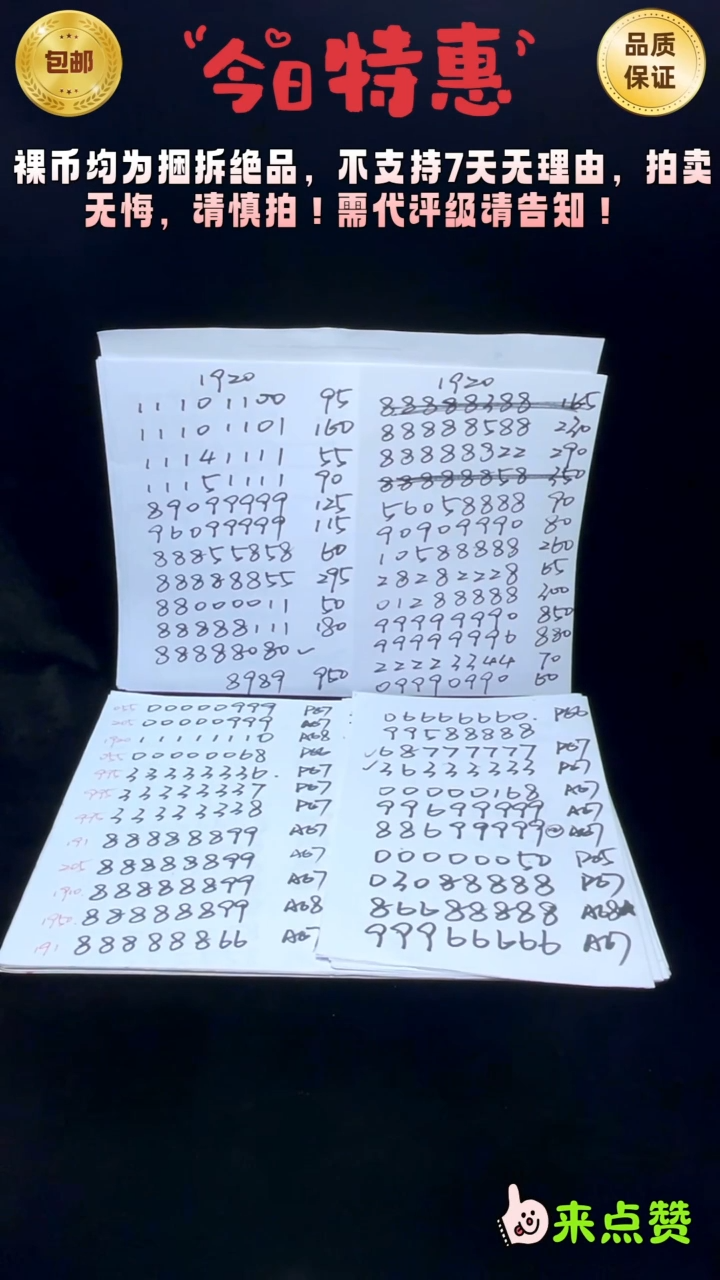 包邮
“今日特惠”
品质
保证
裸币均为捆拆绝品，不支持7天无理由，拍卖
无悔，请慎拍！需代评级请告知！
1920
11101100 95
11101101 160
11141111 55
11151111 90
89099999 125
96099999 115
88855858 60
88888855 295
88000011 50
88888111 180
88888080 ✓
8989 950
1920
88888388 165
88888588 230
88888322 290
88888858 350
56058888 90
90909990 80
10588888 260
28282228 65
01288888 300
99999990 850
99999996 880
22223344 70
09990990 60
055 00000999 P67
205 00000999 A67
1920 11111110 A68
055 00000068 P66
995 33333336. P67
995 33333337 P67
995 33333338 P67
191 88888899 A67
205 88888899 A67
1910. 88888899 A67
1960. 88888899 A68
191 88888866 A67
06666660. P66
99588888
✓68777777 P67
✓36333333 P67
00000168 A67
99699999 A67
88699999 A67
00000050 P65
03088888 P67
86688888 A68
99966666 A67
来点赞